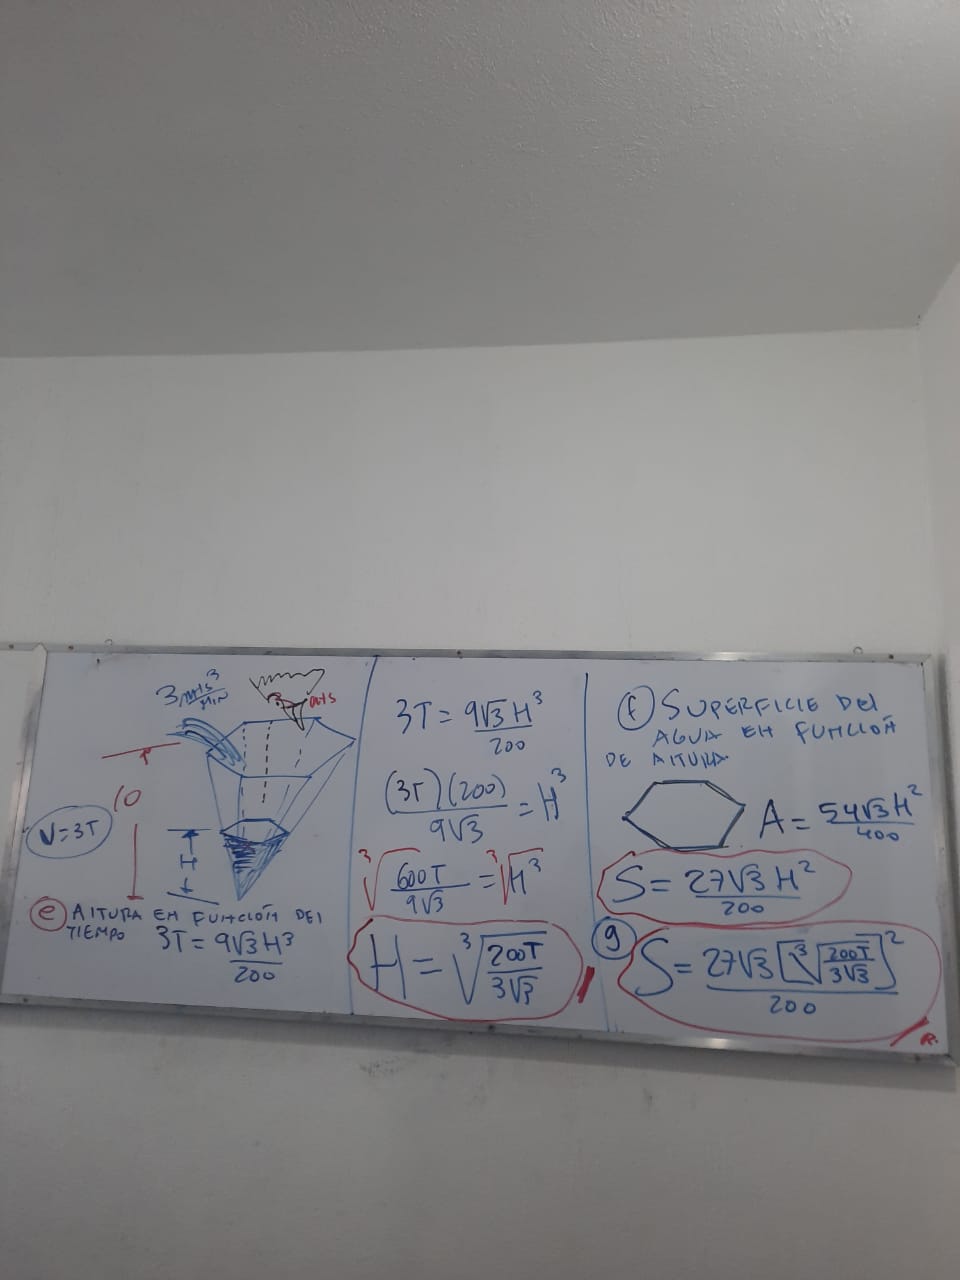 3 mts³/min
3 mts
10
V=3T
H
e) ALTURA EN FUNCIÓN DEL
TIEMPO
3T = 9√3H³/200
3T = 9√3 H³/200
(3T)(200)/9√3 = H³
³√(600T/9√3) = ³√H³
H = ³√(200T/3√3)
f) SUPERFICIE DEL
AGUA EN FUNCIÓN
DE ALTURA
A = 54√3H²/400
S = 27√3 H²/200
g)
S = 27√3[³√(200T/3√3)]²/200
R.